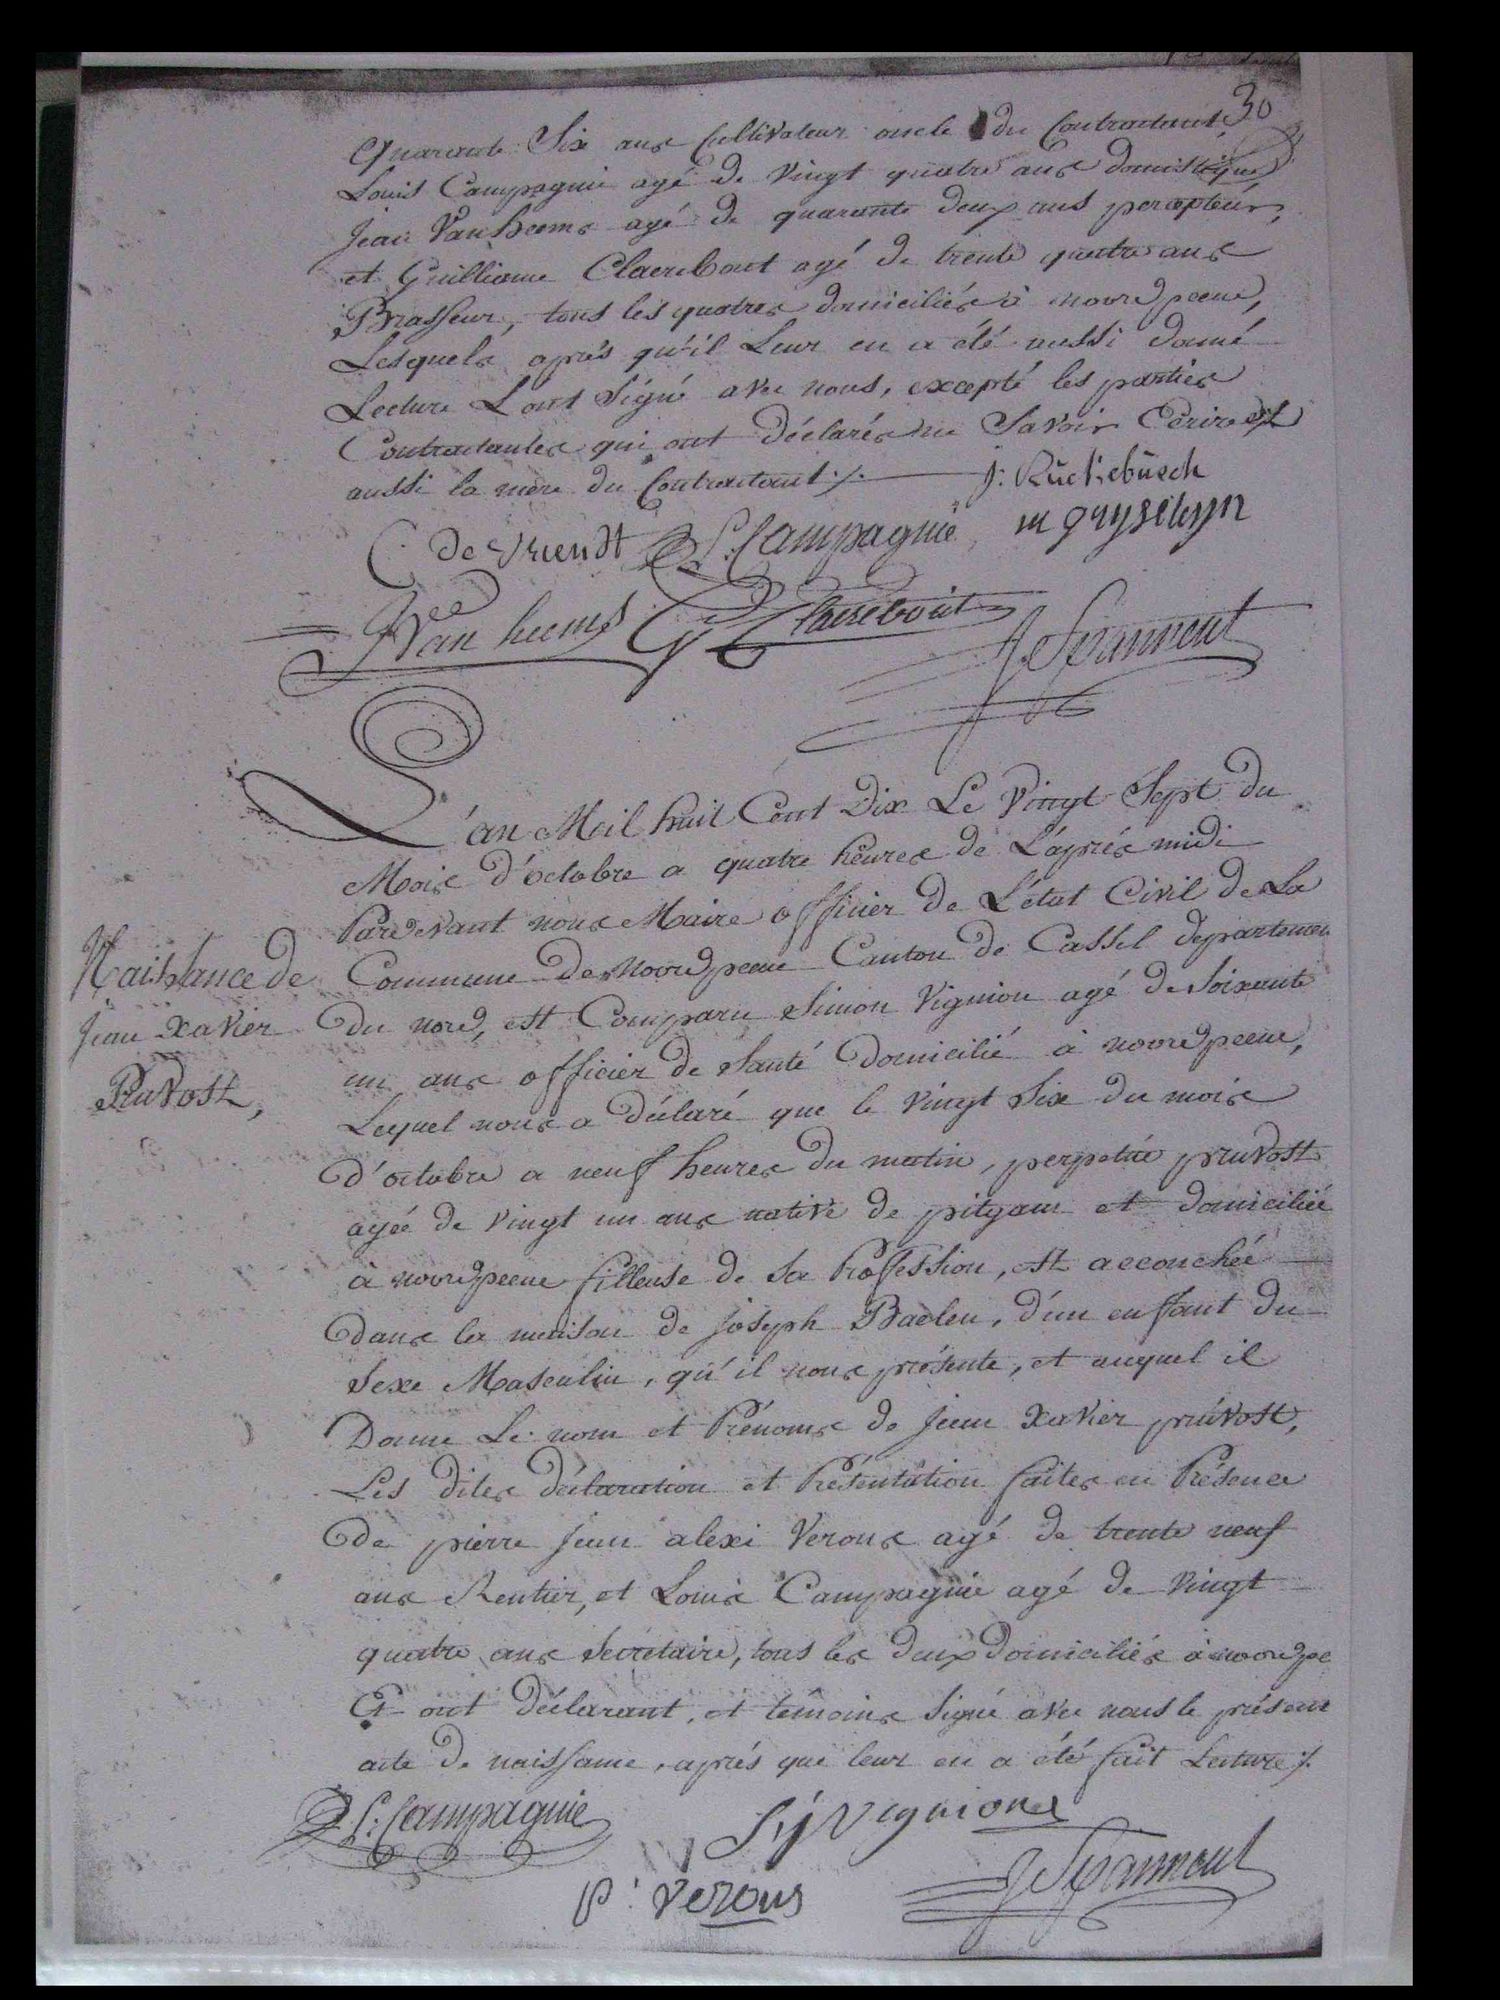 30
quarante Six ans Cultivateur oncle du Contractant,
Louis Campagnie agé de vingt quatre ans domistique
Jean Vanheems agé de quarante deux ans percepteur,
et Guilliaume Claerebout agé de trente quatre ans
Brasseur, tous les quatres domiciliés à noordpeene,
Lesquels aprés qu'il Leur en a été aussi donné
Lecture L'ont Signé avec nous, excepté les parties
Contractantes qui ont déclarés ne Savoir Ecrire et
aussi la mere du Contractant ./.
j: Rückebüsch
C de vriendt L: Campagnie m gryselyn
JVan heems G Claerebout
L'an Mil huit Cent Dix Le Vingt Sept du
Mois d'octobre a quatre heures de L'aprés midi
Pardevant nous Maire officier de L'état Civil de La
Commune De Noordpeene Canton de Cassel departemen
Du nord, est Comparu Simon Vignion agé de Soixante
un ans officier de Santé Domicilié à noordpeene,
Lequel nous a déclaré que le vingt Six du mois
D'octobre a neuf heures du matin, perpetúe pruvost
agée de vingt un ans native de pitgam et domiciliée
à noordpeene filleuse de Sa Profession, est accouchée
Dans la maison de joseph Baelen, d'un enfant du
Sexe Masculin, qu'il nous présente, et auquel il
Donne Le nom et Prénoms de Jean Xavier prúvost,
Les dites déclaration et Présentation faites en Présence
De pierre Jean alexi Verous agé de trente neuf
ans Rentier, et Louis Campagnie agé de vingt
quatre ans Secrétaire, tous les deux domiciliés à noordpe
Et ont déclarant, et témoins Signé avec nous le présent
acte de naissance, aprés que leur en a été fait Lecture ./.
Naissance de
Jean Xavier
Pruvost,
L: Campagnie S:j Vignion
p: verous